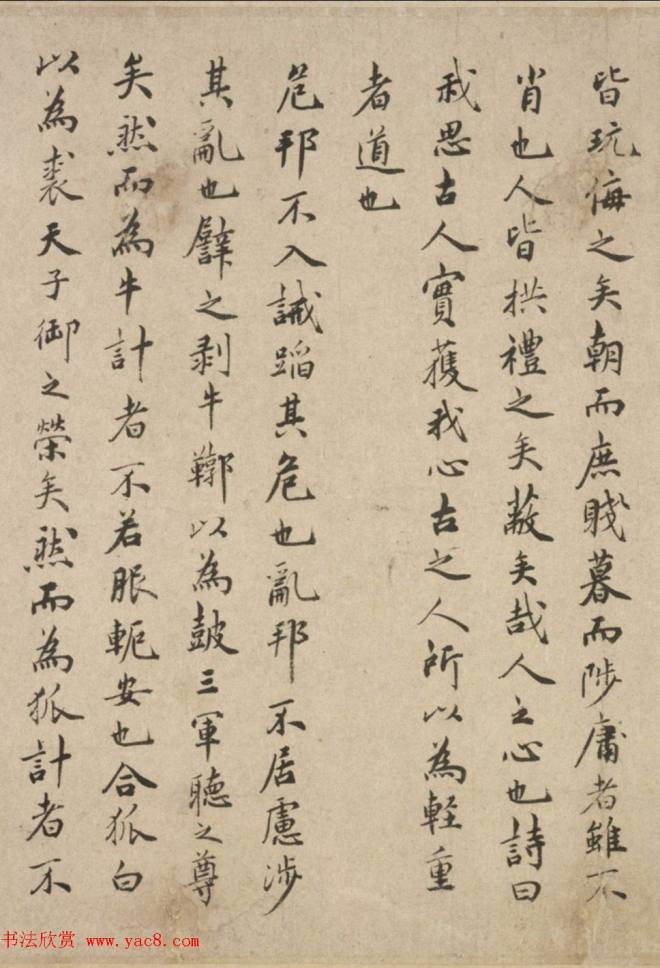 皆玩侮之矣朝而庶賤暮而陟庸者雖不
肖也人皆拱禮之矣蔽矣哉人之心也詩曰
我思古人實獲我心古之人所以為輕重
者道也
危邦不入誡蹈其危也亂邦不居慮涉
其亂也譬之剥牛鞹以為鼓三軍聽之尊
矣然而為牛計者不若服軛安也合狐白
以為裘天子御之榮矣然而為狐計者不
书法欣赏 www.yac8.com